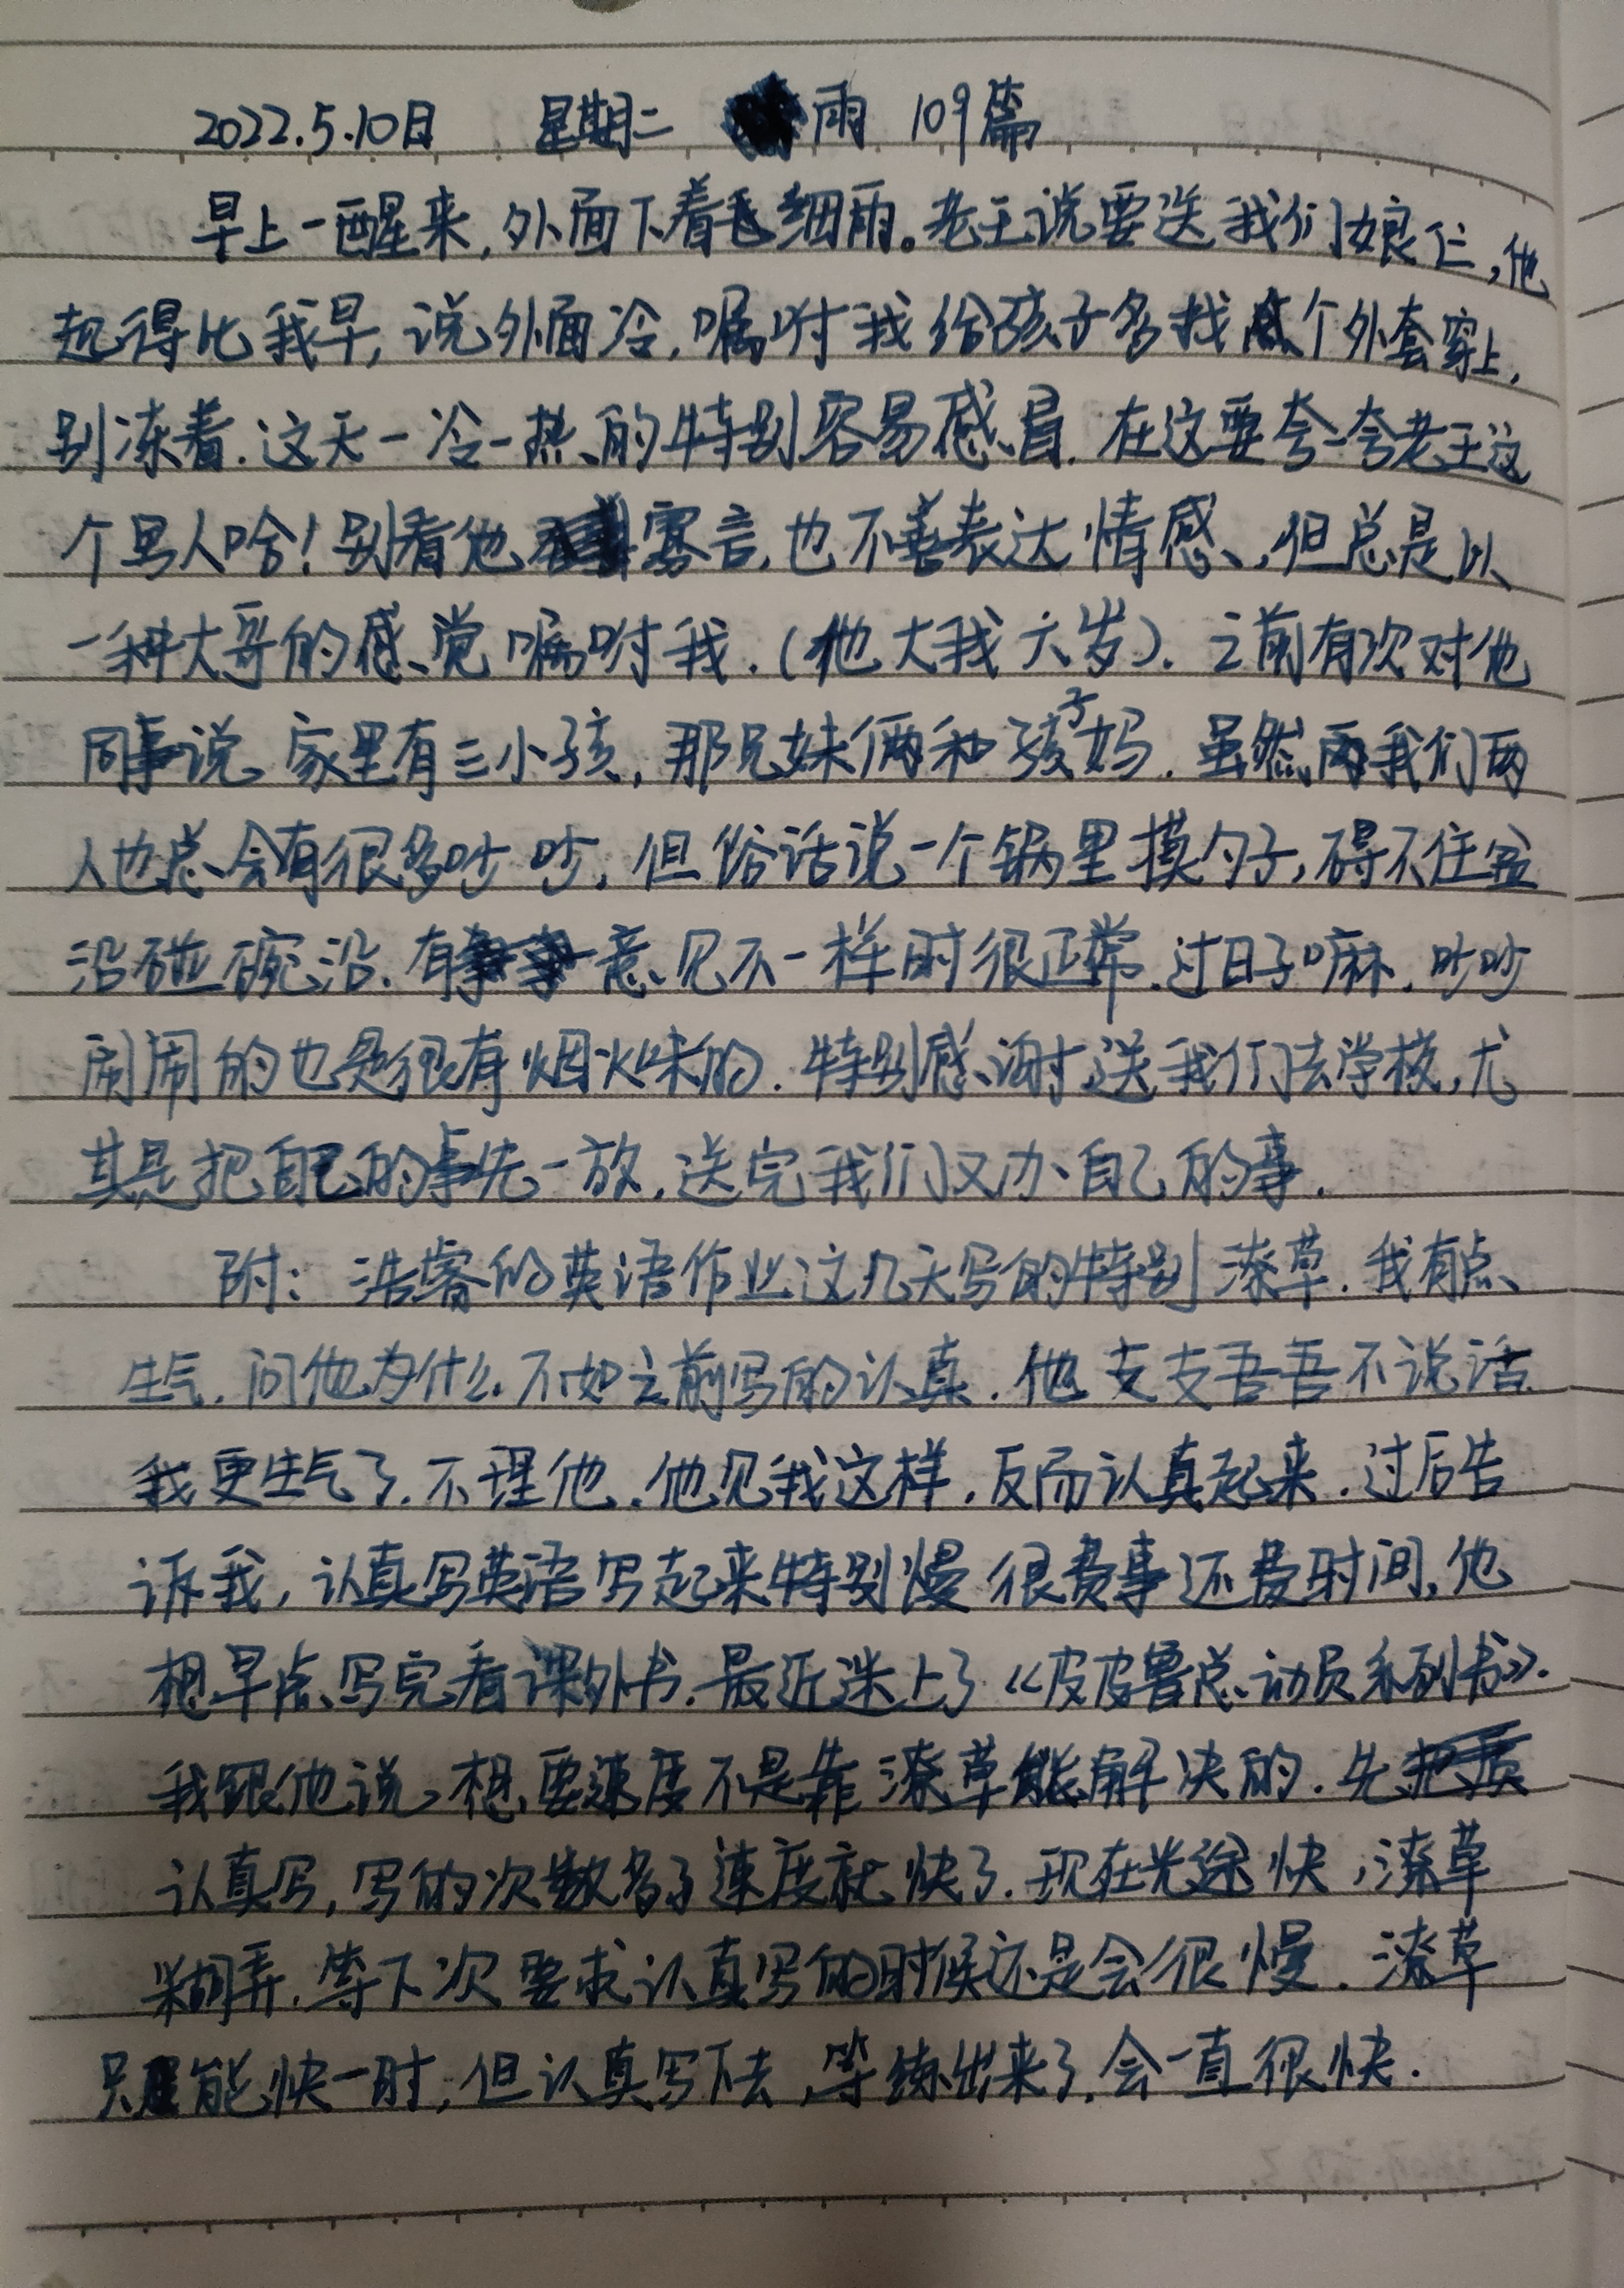 2022.5.10日 星期二 雨 109篇
早上一醒来,外面下着毛细雨。老王说要送我们娘仨,他
起得比我早,说外面冷,嘱咐我给孩子多找个外套穿上,
别冻着.这天一冷一热的特别容易感冒.在这要夸一夸老王这
个男人啥!别看他寡言,也不善表达情感,但总是以
一种大哥的感觉嘱咐我.(他大我六岁).之前有次对他
同事说家里有三小孩,那兄妹俩和孩子妈.虽然我们两
人也总会有很多吵吵,但俗话说一个锅里摸勺子,碍不住盆
沿碰碗沿.有意见不一样时很正常.过日子嘛,吵吵
闹闹的也是很有烟火味的.特别感谢送我们去学校,尤
其是把自己的事先一放,送完我们又办自己的事.
附:浩睿的英语作业这几天写的特别潦草.我有点
生气.问他为什么不如之前写的认真.他支支吾吾不说话
我更生气了.不理他.他见我这样,反而认真起来.过后告
诉我,认真写英语写起来特别慢很费事还费时间,他
想早点写完看课外书.最近迷上了《皮皮鲁总动员系列书》.
我跟他说想要速度不是靠潦草能解决的.先
认真写,写的次数多了速度就快了.现在光途快,潦草
糊弄.等下次要求认真写的时候还是会很慢.潦草
只能快一时,但认真写下去,等练出来了,会一直很快.